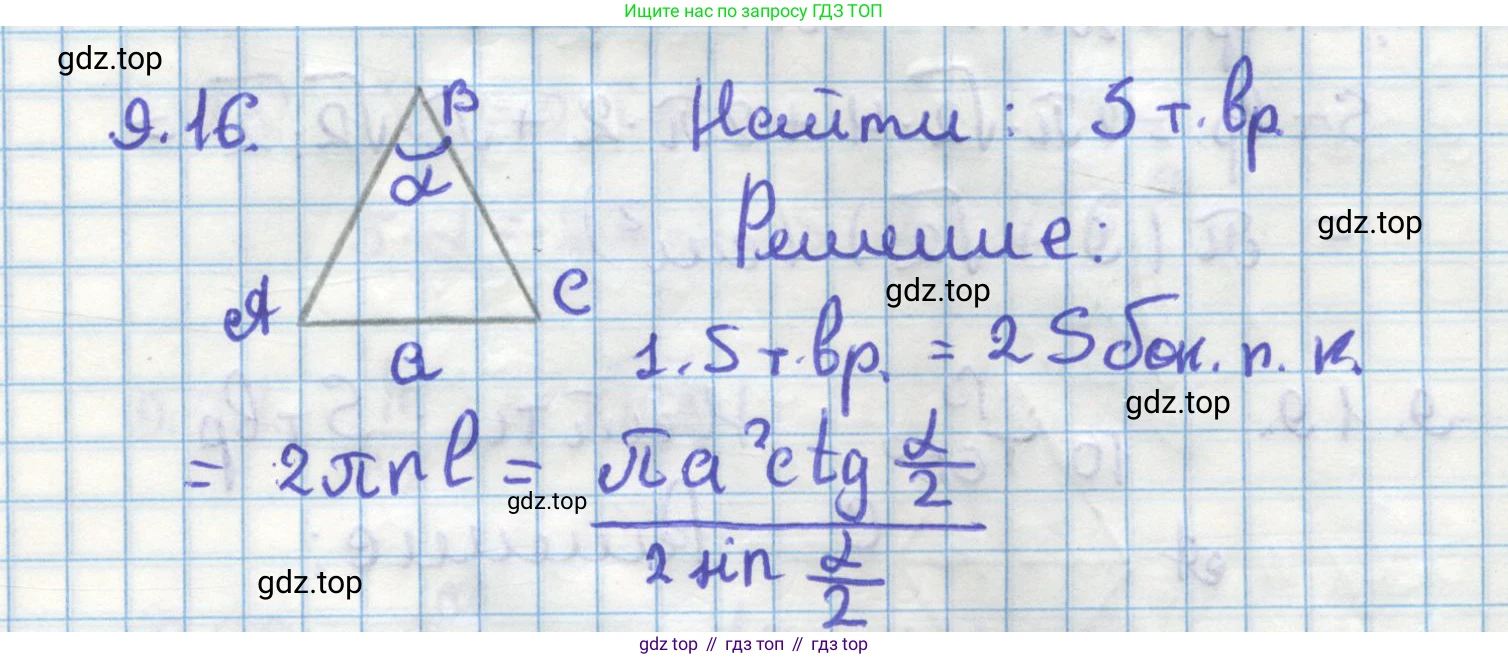 Ищите нас по запросу ГДЗ ТОП
gdz.top
9.16.
B
α
A
C
a
Найти: S т.вр
gdz.top
Решение:
gdz.top
1. S т.вр. = 2 S бок. п. к.
gdz.top
= 2πrl = πa²ctg α/2
gdz.top
2 sin α/2
gdz.top
gdz top // гдз топ // гдз top